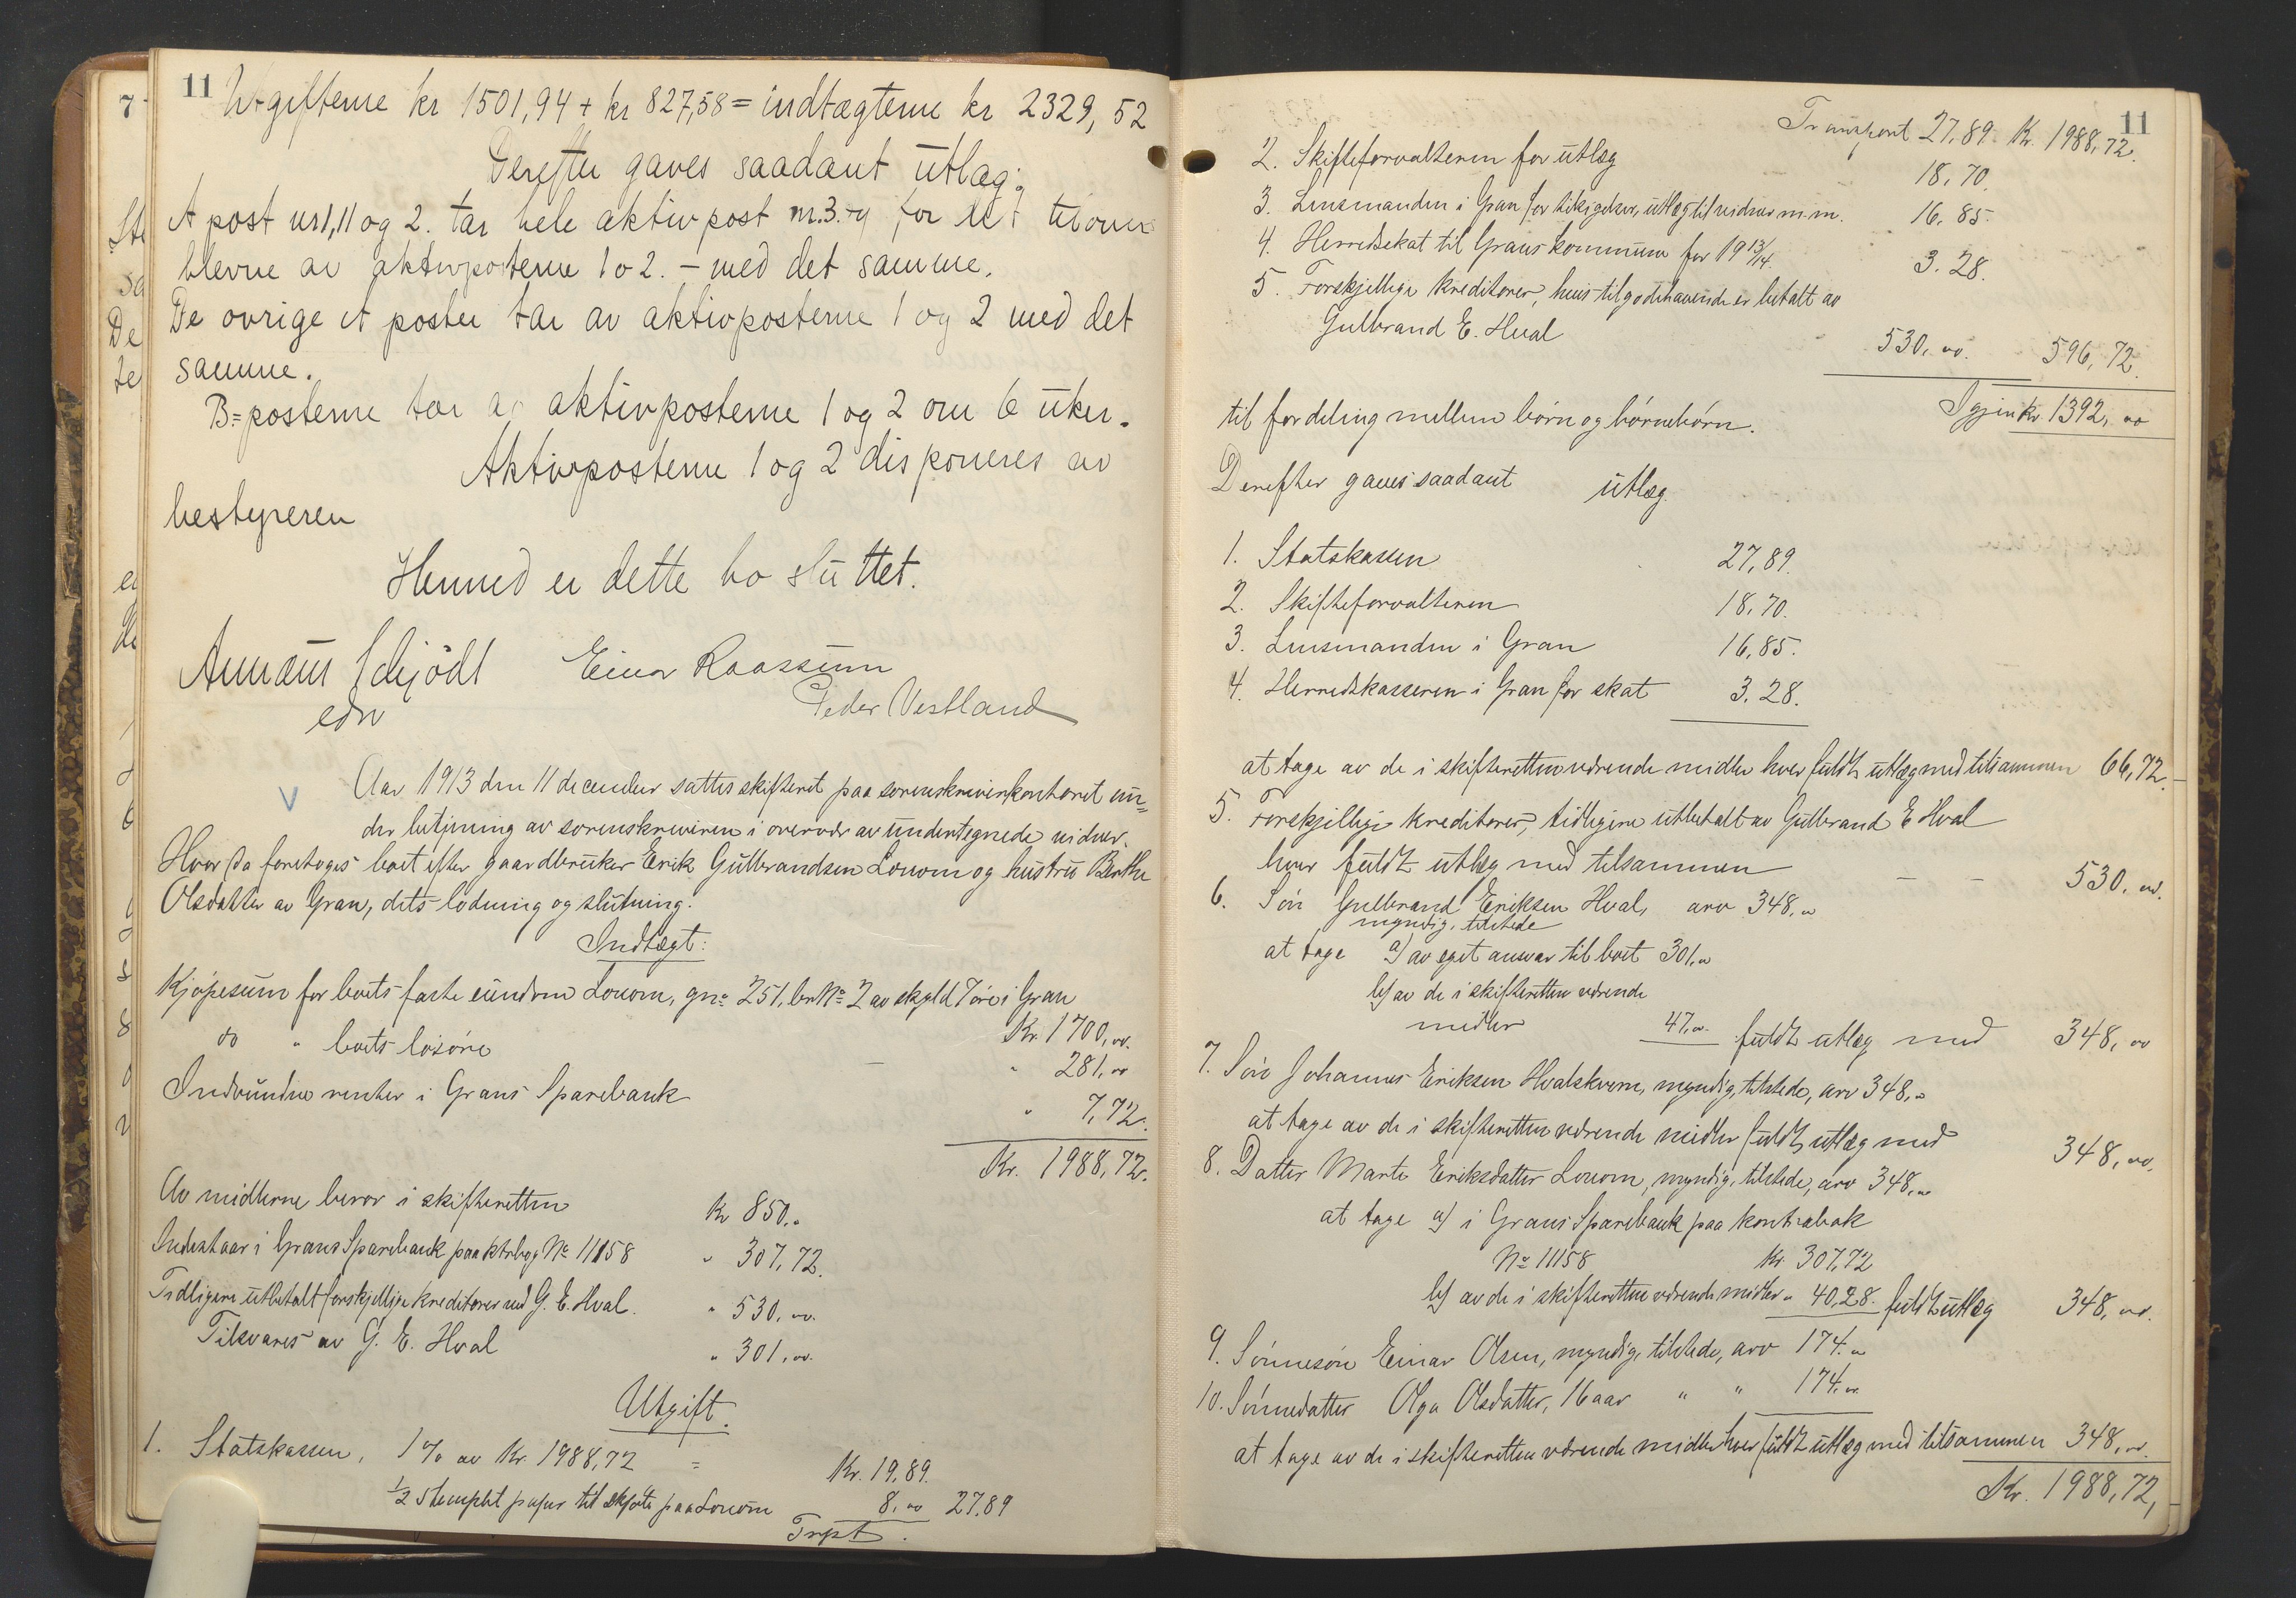 11
Utgifterne kr 1501,94 + kr 827,58 = indtægterne kr 2329,52
Derefter gaves saadant utlæg:
A post nr 1, 11 og 2. tar hele aktivpost nr. 3. og for
blevne av aktivposterne 1 o 2. – med det samme.
De øvrige A poster tar av aktivposterne 1 og 2 med det
samme.
B=posterne tar av aktivposterne 1 og 2 om 6 uker.
Aktivposterne 1 og 2 disponeres av
bestyreren
Hermed er dette bo sluttet.
Schjödt Einar Raassum
edv Peder Vestland
V Aar 1913 den 11 december sattes skifteret paa sorenskriverkontoret un=
der betjening av sorenskriveren i overvær av undertegnede vidner.
Hvor da foretoges boet efter gaardbruker Erik Gulbrandsen Louom og hustru Berthe
Olsdatter av Gran, dets lodning og slutning.
Indtægt:
Kjøpesum for boets faste eiendom Louom, gno 251, br No 2 av skyld 7 øre i Gran
Kr. 1700,00.
do " boets løsøre – " 281,00
Indvundne renter i Grans Sparebank " 7,72.
Kr. 1988,72.
Av midlerne beror i skifteretten Kr 850,"
Indestaar i Grans Sparebank paa ktrbog No 11158 " 307,72.
Tidligere utbetalt forskjellige kreditorer ved G. E. Hval. " 530,00.
Tilsvares av G. E. Hval " 301,00.
Utgift.
1. Statskassen, 1 % av Kr. 1988,72 = Kr. 19,89.
1/2 stemplet papir til skjøte paa Louom 8,00 27,89
Trpt.
11
Transport 27,89 Kr. 1988,72.
2. Skifteforvalteren for utlæg 18,70.
3. Lensmanden i Gran for tilsigelser, utlæg til vidner m.m. 16,85.
4. Herredsskat til Grans kommune for 19 13/14. 3.28.
5. Forskjellige kreditorer, hvis tilgodehavende er betalt av
Gulbrand E. Hval 530,00. 596,72.
Igjen kr. 1392,00
til fordeling mellem børn og børnebørn.
Derefter gaves saadant utlæg.
1. Statskassen 27,89.
2. Skifteforvalteren 18,70.
3. Lensmanden i Gran 16,85.
4. Herredskasseren i Gran for skat 3.28.
at tage av de i skifteretten værende midler hver fuldt utlæg med tilsammen 66,72.
5. Forskjellige kreditorer, tidligere utbetalt av Gulbrand E Hval
hver fuldt utlæg med tilsammen – – 530,00.
6. Søn Gulbrand Eriksen Hval, arv 348,00
myndig, tilstede
at tage a) av eget ansvar til boet 301,00
b) av de i skifteretten værende
midler 47,00. fuldt utlæg med 348,00
7. Søn Johannes Eriksen Hvalskvern, myndig, tilstede, arv 348,00
at tage av de i skifteretten værende midler fuldt utlæg med 348,00.
8. Datter Marte Eriksdatter Louom, myndig, tilstede, arv 348,00
at tage a) i Grans Sparebank paa kontrabok
No 11158 Kr. 307,72
b) av de i skifteretten værende midler " 40,28. fuldt utlæg 348,00.
9. Sønnesøn Einar Olsen, myndig, tilstede, arv 174,00
10. Sønnedatter Olga Olsdatter, 16 aar " " 174,00.
at tage av de i skifteretten værende midler hver fuldt utlæg med tilsammen 348,00.
Kr. 1988,72,